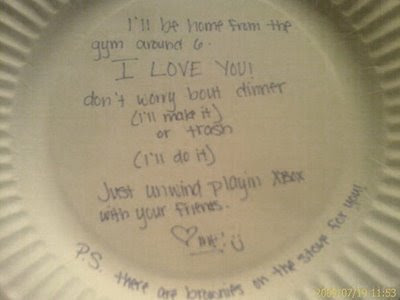 I'll be home from the
gym around 6.
I LOVE YOU!
don't worry bout dinner
(I'll make it)
or trash
(I'll do it)
Just unwind playin XBOX
with your friends.
♡ me! :)
PS. there are brownies on the stove for you!
2009/07/19 11:53